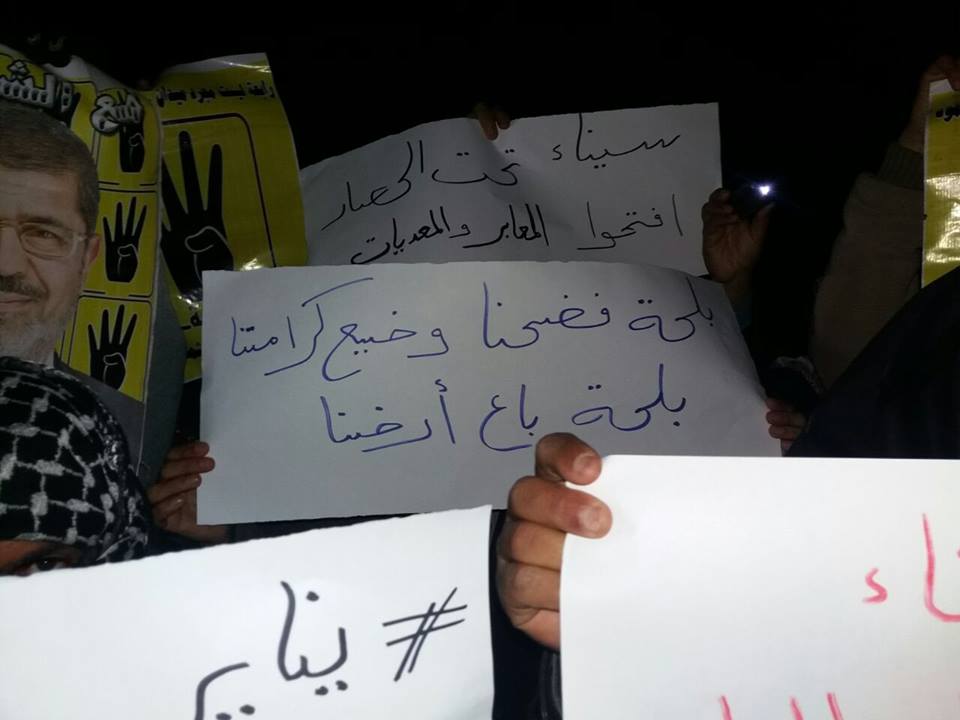 رابعة ليست مجرد ميدان
سيناء تحت الحصار
افتحوا المعابر والمعديات
بلحة فضحنا وضيع كرامتنا
بلحة باع أرضنا
#يناير